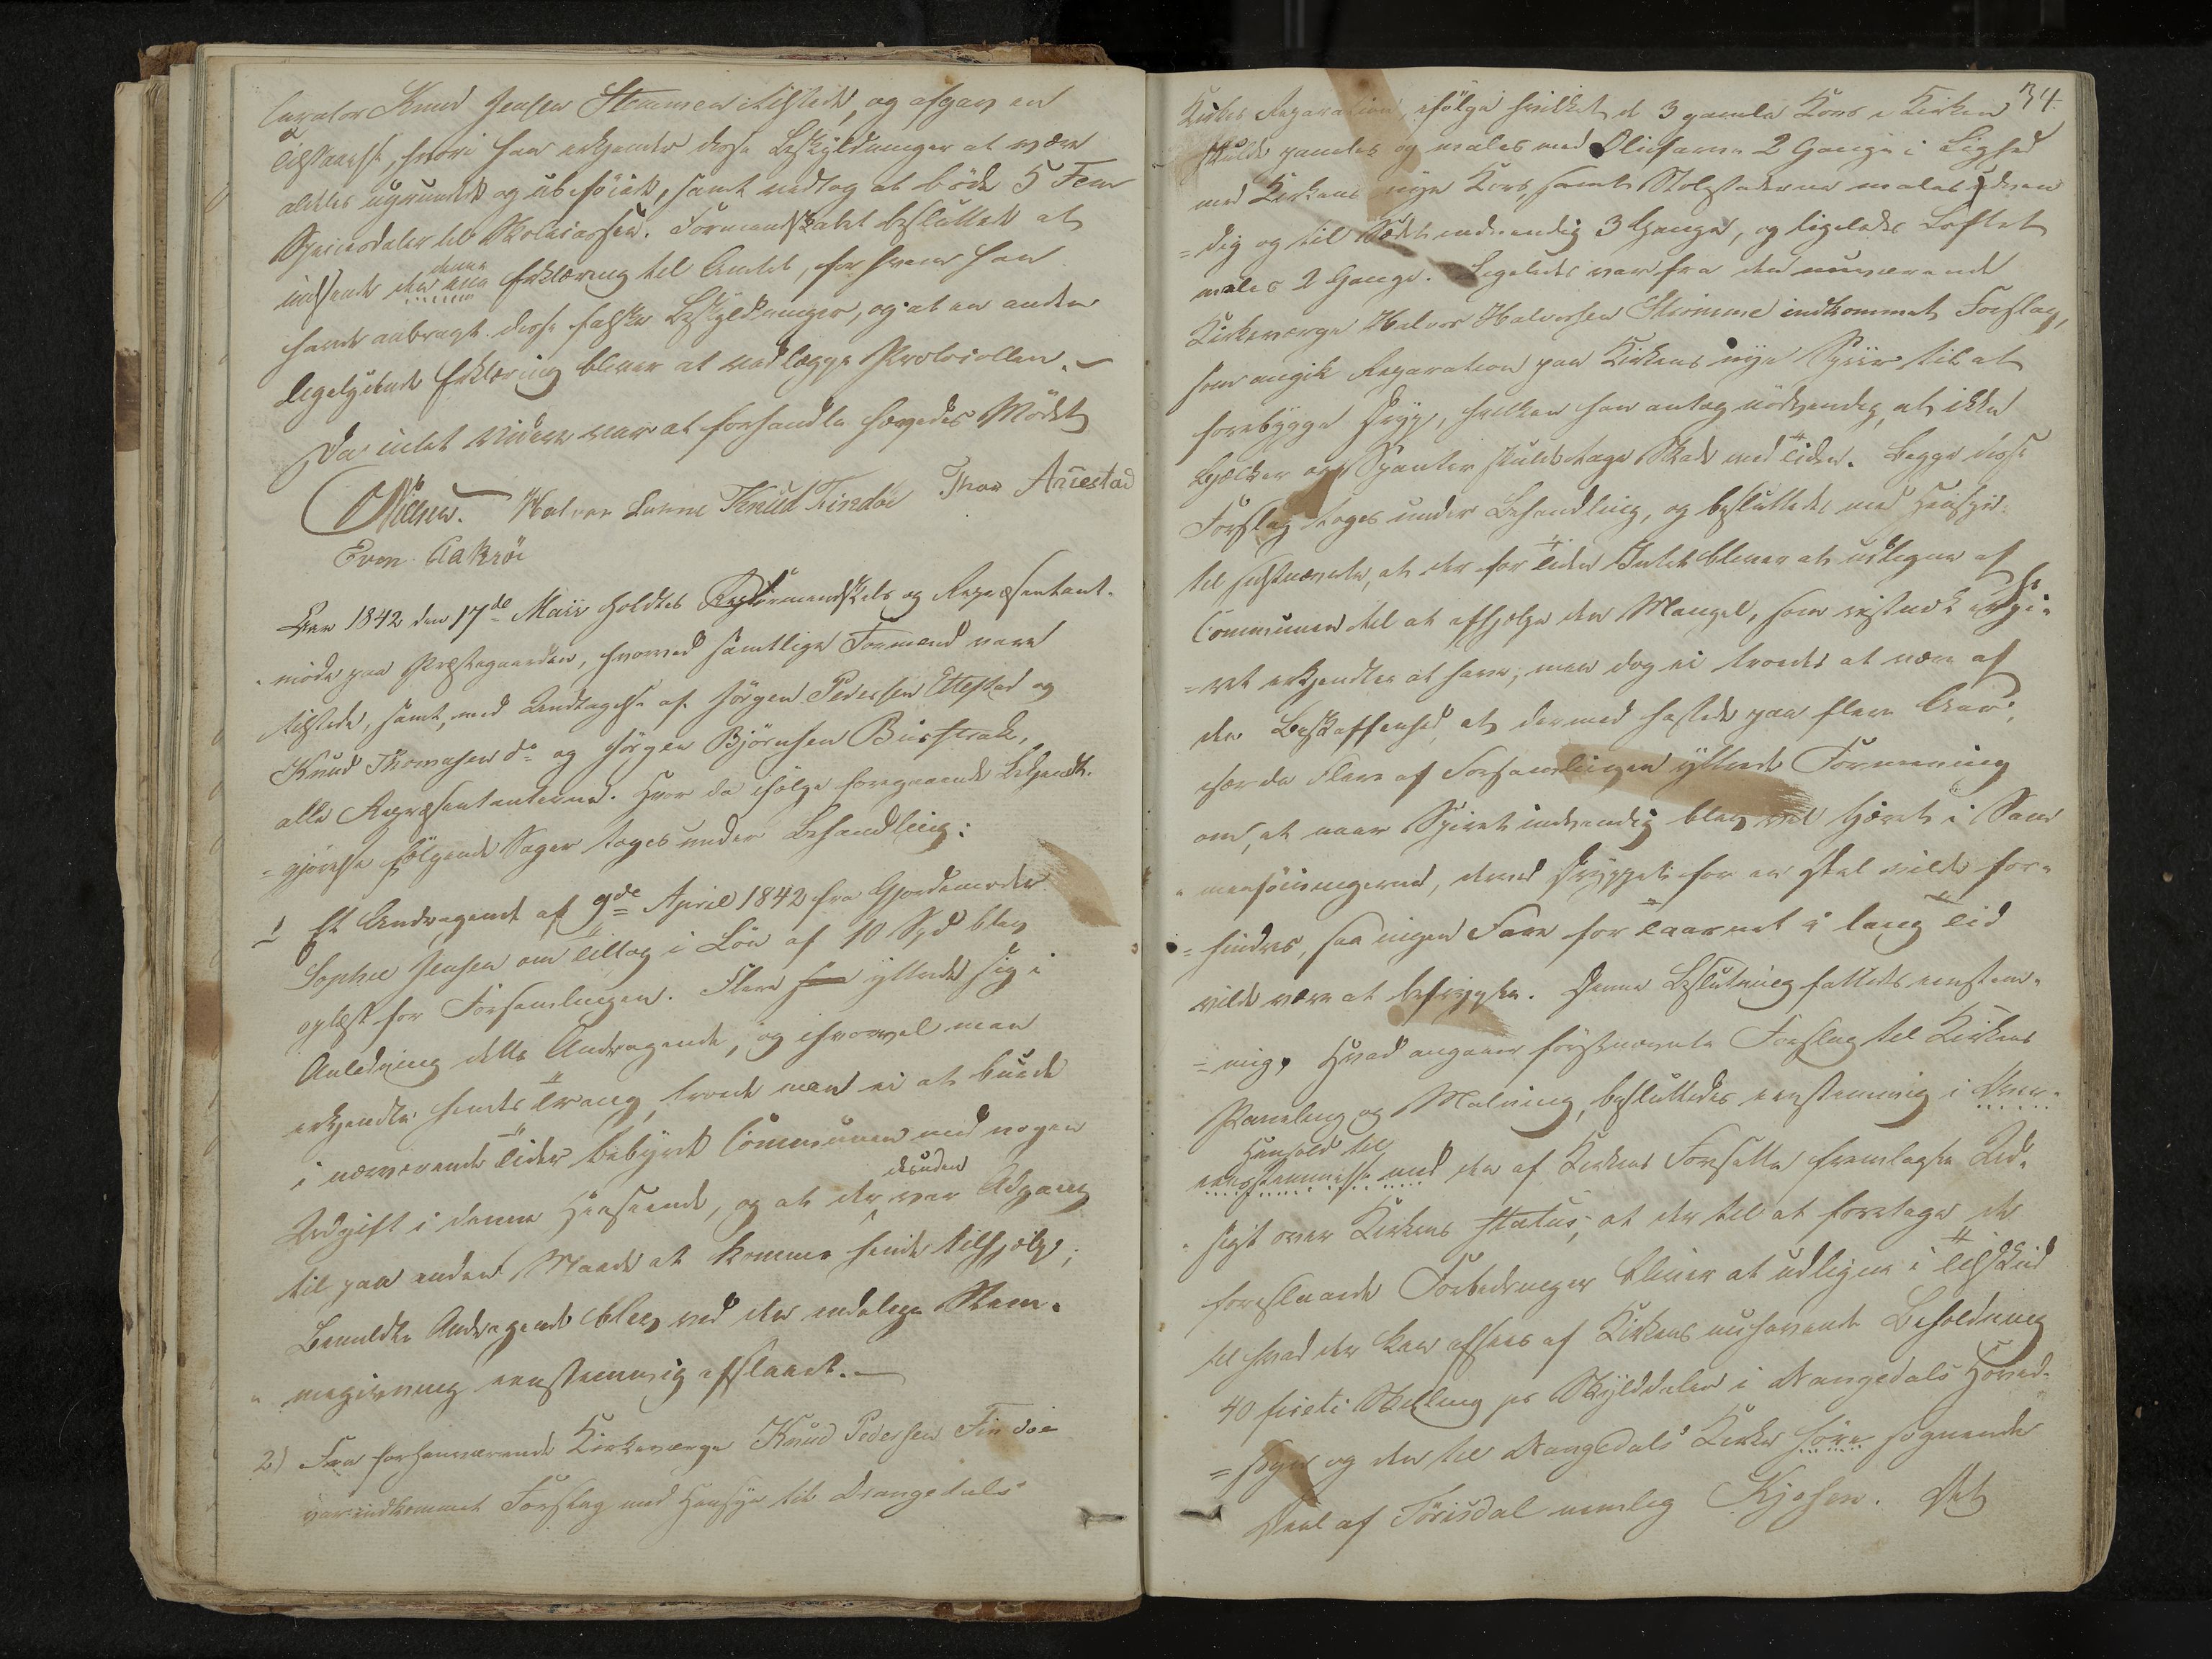 Curator Knud Jensen Stommen itilstede, og afgav en
Tilstaaelse, hvori han erkjender disse Beskyldninger at være
aldeles ugrundet og ubeføiet, samt vedtog at bøde 5 Fem
Speciedaler til Skolecassen. Formandskabet besluttet at
indsende den ene denne Erklæring til Amtet, for hvem han
havde anbragt disse falske Beskyldninger, og at en anden
ligelydende Erklæring bliver at vedlægge Protocollen. –
Da intet videre var at forhandle hævedes Mødet
Nielsen. Halvor Lunne Knud Findøe Thor Ariestad
Even Aakrøe
Aar 1842 den 17de Maii holdtes Formandskabs og Repræsentant-
møde paa Præstegaarden, hvorved samtlige Formænd vare
tilstede, samt, med Undtagelse af Jørgen Pedersen Ettestad og
Knud Thomasen do og Jørgen Bjørnsen Buistrak,
alle Repræsentanterne. Hvor da ifølge foregaaende Bekjendt-
=gjørelse følgende Sager toges under Behandling:
1 Et Andragende af 9de April 1842 fra Gjordemoder
Sophie Jensen om Tillæg i Løn af 10 Spd blev
oplæst for Forsamlingen. Flere yttrede sig i
Anledning dette Andragende, og ihvorvel man
erkjendte hendes Trang, troede man ei at burde
i nærværende Tider bebyrde Communen med nogen
Udgift i denne Henseende, og at der desuden var Adgang
til paa anden Maade at komme hende tilhjelp;
Bemeldte Andragende blev ved den endelige Stem-
megivning eenstemmig afslaaet. –
2) Fra forhenværende Kirkeværge Knud Pedersen Findøe
var indkommet Forslag med Hensyn til Drangedals
34.
Kirkes Reparation, ifølge hvilket de 3 gamle Kors i Kirken
skulde paneles og males med Oliefarve 2 Gange i Lighed
med Kirkens nye Kors, samt Stolestaderne males udven-
=dig og til Sædet indvendig 3 Gange, og ligeledes Loftet
males 2 Gange. Ligeledes var fra den nuværende
Kirkeværge Halvor Halvorsen Stromme indkommet Forslag,
som angik Reparation paa Kirkens nye Spiir til at
forebygge Dryp, hvilken han antog nødvendig, at ikke
Bjælker og Spanter skulde tage Skade med Tiden. Begge disse
Forslag toges under Behandling, og besluttedes med Hensyn
til sidstnævnte, at der for Tiden Intet bliver at udligne af
Communen til at afhjelpe den Mangel, som vistnok Spi-
=ret erkjendtes at have, men dog ei troedes at være af
den Beskaffenhed, at dermed hastede paa flere Aar,
især da Flere af Forsamlingen yttrede Formening
om, at naar Spiret indvendig blev vel tjæret i Sam
menføiningerne, derved Dryppet for en Deel vilde for-
=hindres, saa ingen Fare for Taarnet i lang Tid
vilde være at befrygte. Denne Beslutning fattedes eenstem-
=mig. Hvad angaaer førstnævnte Forslag til Kirkens
Paneling og Malning, besluttedes eenstemmig i Over-
eensstemmelse med Henhold til den af Kirkens Forsatte fremlagte Ud-
sigt over Kirkens Status, at der til at foretage de
foreslaaede Forbedringer bliver at udligne i Tilskud
til hvad der kan afsees af Kirkens nuhavende Beholdning
40 fireti Skilling pr Skylddaler i Drangedals Hoved-
=sogn og den til Drangedals Kirke høre søgnende
Deel af Tørisdal nemlig Kjøsen. Det